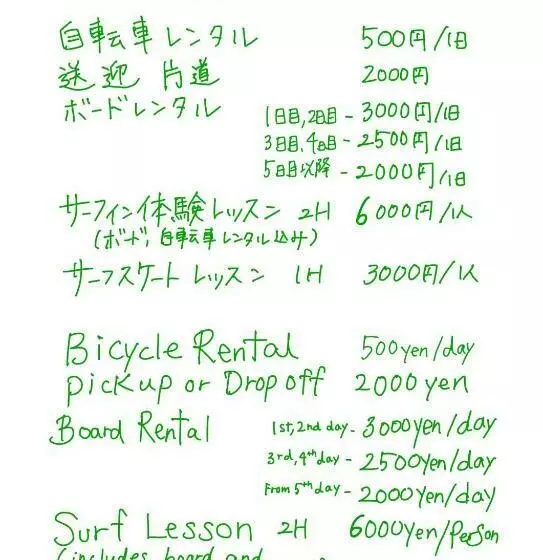 自転車レンタル 500円/1日
送迎 片道 2000円
ボードレンタル 1日目,2日目 - 3000円/1日
3日目,4日目 - 2500円/1日
5日目以降 - 2000円/1日
サーフィン体験レッスン 2H 6000円/1人
(ボード, 自転車レンタル込み)
サーフスケートレッスン 1H 3000円/1人
Bicycle Rental 500yen/day
Pickup or Drop off 2000 yen
Board Rental 1st, 2nd day - 3000yen/day
3rd, 4th day - 2500yen/day
From 5th day - 2000yen/day
Surf Lesson 2H 6000yen/person
(includes board and